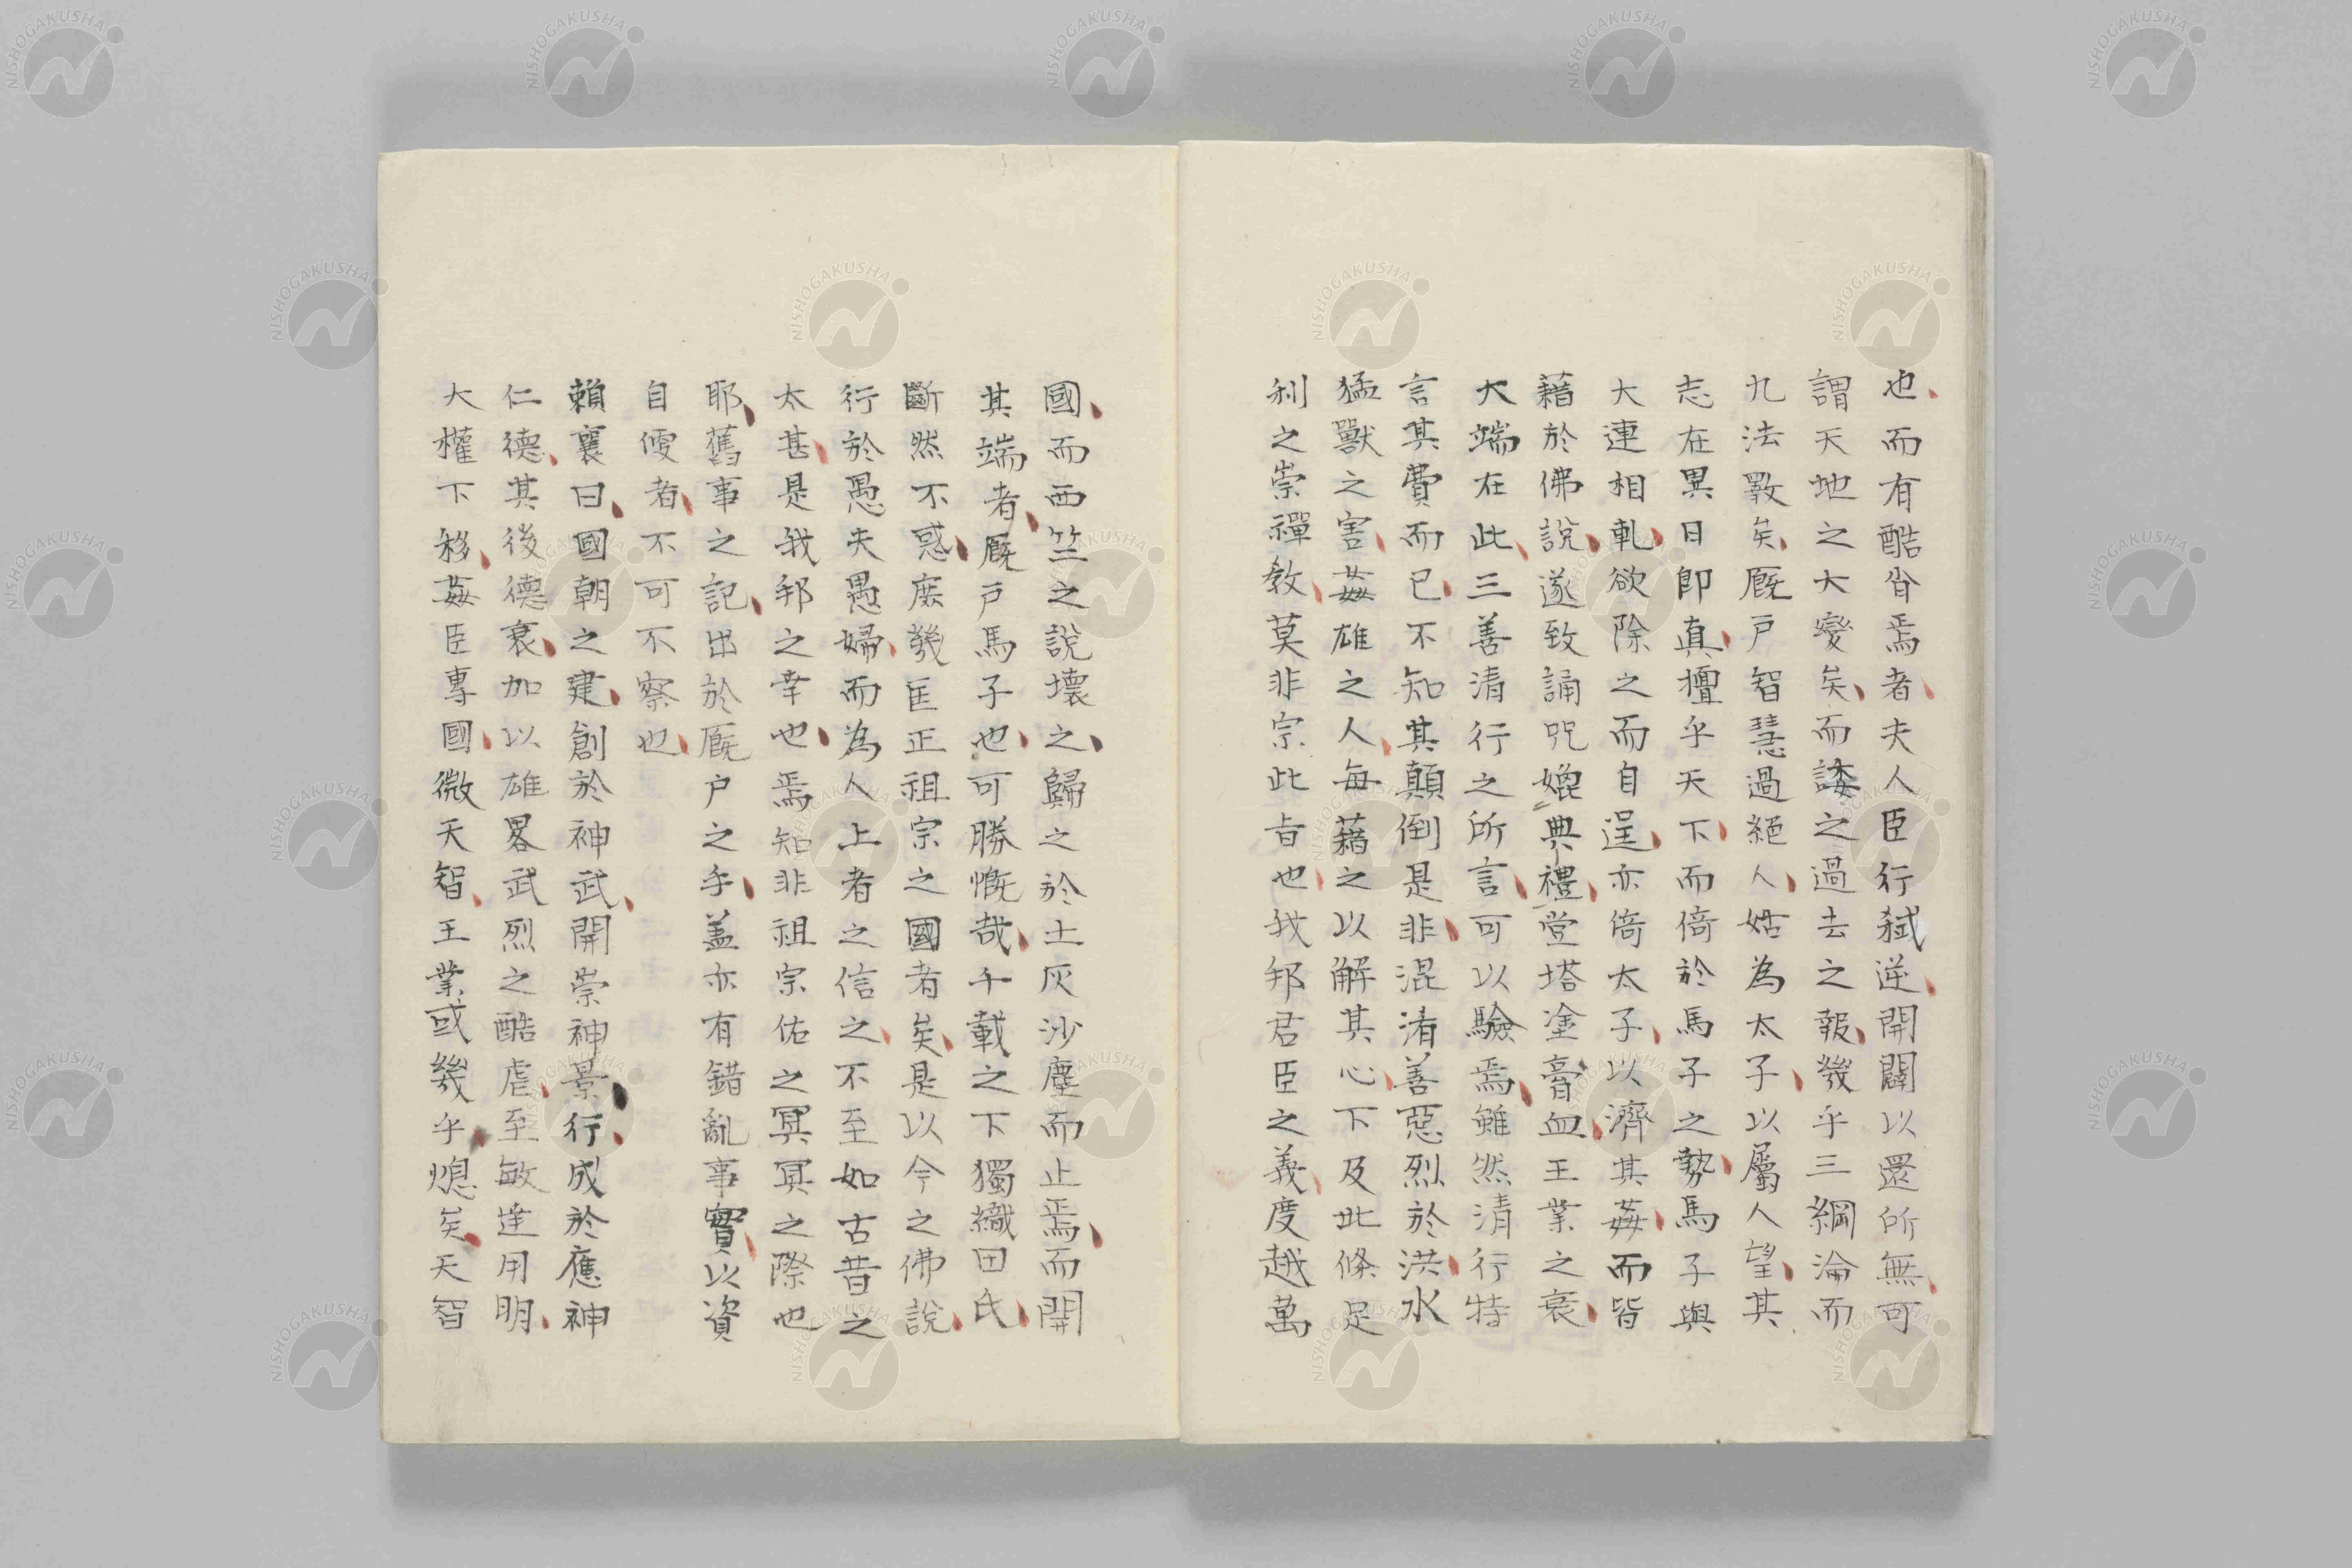 也而有酷咎焉者夫人臣行弑逆開闢以還所無可
謂天地之大變矣而諉之過去之報幾乎三綱淪而
九法斁矣厩戸智慧過絕人姑為太子以屬人望其
志在異日即真擅乎天下而倚於馬子之勢馬子與
大連相軋欲除之而自逞亦倚太子以濟其姦而皆
藉於佛說遂致誦咒媲典禮堂塔塗膏血王業之衰
大端在此三善清行之所言可以驗焉雖然清行特
言其費而已不知其顛倒是非混淆善惡烈於洪水
猛獸之害姦雄之人每藉之以解其心下及北條足
利之崇禪教莫非宗此旨也我邦君臣之義度越萬
國而西竺之說壞之歸之於土灰沙塵而止焉而開
其端者厩戸馬子也可勝慨哉千載之下獨織田氏
斷然不惑庶幾匡正祖宗之國者矣是以今之佛說
行於愚夫愚婦而為人上者之信之不至如古昔之
太甚是我邦之幸也焉知非祖宗佑之冥冥之際也
耶舊事之記出於厩戸之手盖亦有錯亂事實以資
自便者不可不察也
賴襄曰國朝之建創於神武開崇神景行成於應神
仁德其後德衰加以雄畧武烈之酷虐至敏達用明
大權下移姦臣專國微天智王業或幾乎熄矣天智
NISHOGAKUSHA